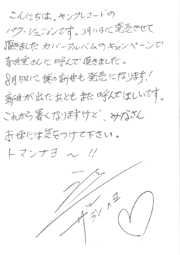 こんにちは。ヤングレコードの
パク・ジュニョンです。3月11日に発売させて
頂きました カバーアルバムのキャンペーンで
さんに呼んで頂きました。
8月5日に僕の新曲も発売になります!
新曲が出たあともまた呼んでほしいです。
これから暑くなりますけど、みなさん
お体には気をつけて下さい。
トマンナヨ ~ !!